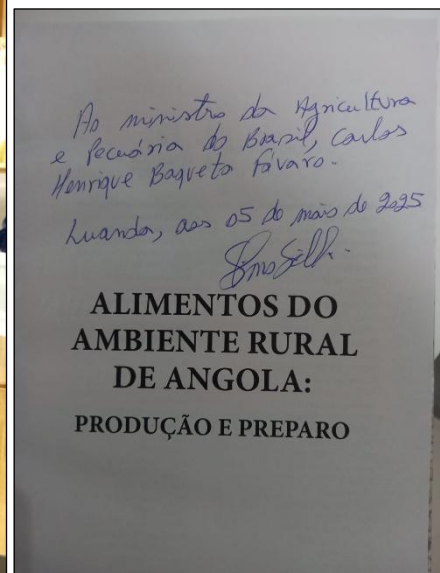 Ao ministro da Agricultura
e Pecuária do Brasil, Carlos
Henrique Baqueta Fávaro.
Luanda, aos 05 de maio de 2025
ALIMENTOS DO
AMBIENTE RURAL
DE ANGOLA:
PRODUÇÃO E PREPARO